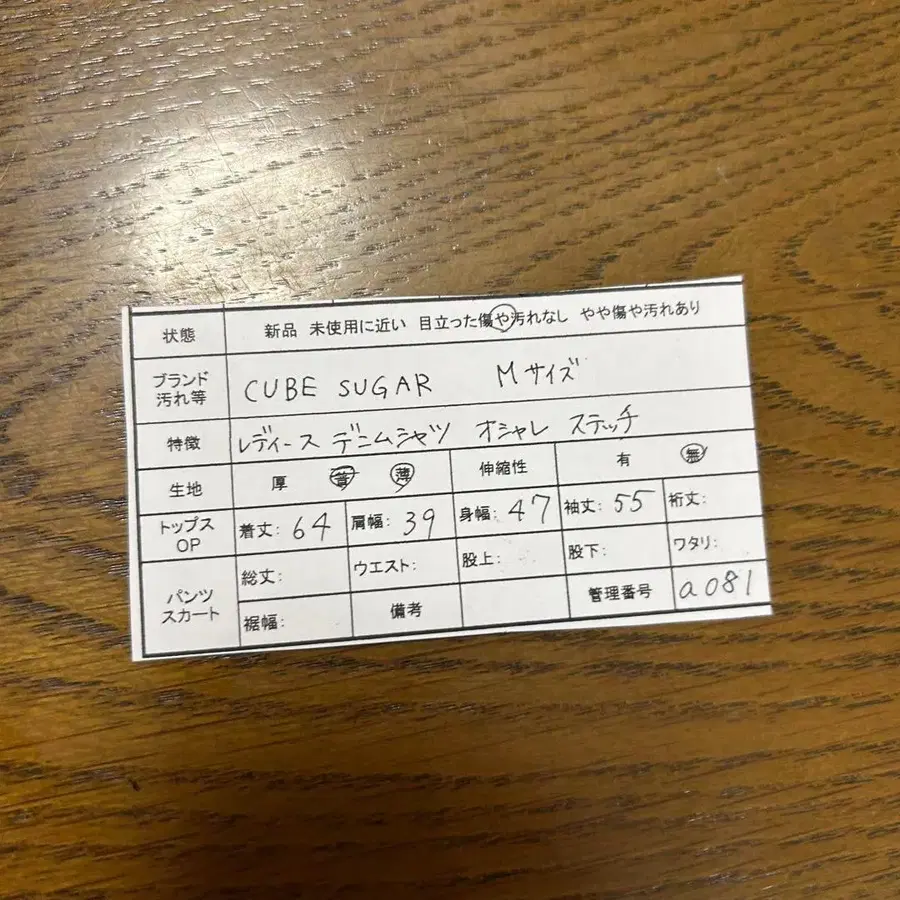 状態 新品 未使用に近い 目立った傷や汚れなし やや傷や汚れあり
ブランド 汚れ等 CUBE SUGAR Mサイズ
特徴 レディース デニムシャツ オシャレ ステッチ
生地 厚 普 薄 伸縮性 有 無
トップス OP 着丈: 64 肩幅: 39 身幅: 47 袖丈: 55 裄丈:
パンツ スカート 総丈: ウエスト: 股上: 股下: ワタリ:
裾幅: 備考 管理番号 a081